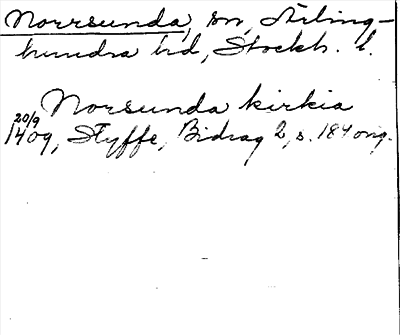 Norrsunda, sn, Ärling-
hundra hd, Stockh. l.
Norsunda kirkia
20/9
1409, Styffe, Bidrag 2, s. 184 orig.